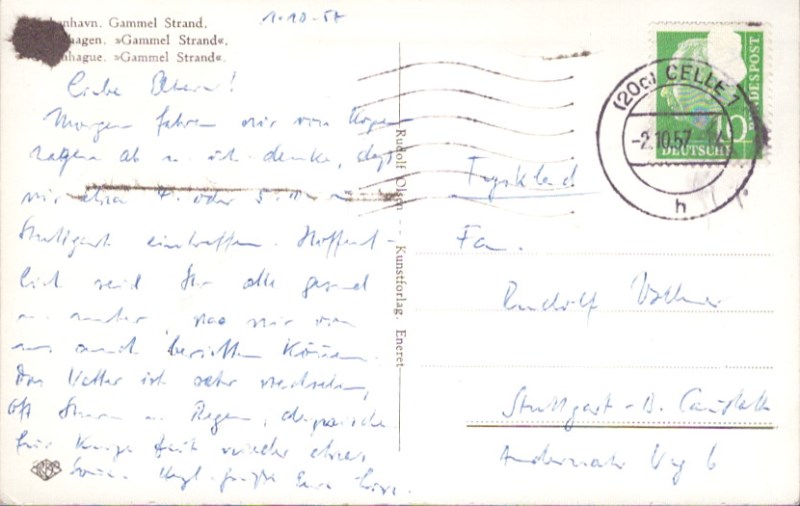 København. Gammel Strand.
hagen. »Gammel Strand«.
nhague. »Gammel Strand«.
1.10.57
Liebe Eltern!
Morgen fahren wir von Kopen-
hagen ab u. ich denke, dass
wir etwa 4. oder 5. in
Stuttgart eintreffen. Hoffent-
lich seid Ihr alle gesund
u. munter, was wir von
uns auch berichten können.
Das Wetter ist sehr wechselnd,
oft Sturm u. Regen, dazwischen
für kurze Zeit wieder etwas
Sonne. Herzl. Grüße Eure
Rudolf Olsen -- Kunstforlag. Eneret
(20a) CELLE 1
-2.10.57
h
10
DEUTSCHE
BUNDESPOST
Tyskland
Fam.
Rudolf Vollmer
Stuttgart-B. Cannstatt
Andernacher Weg 6